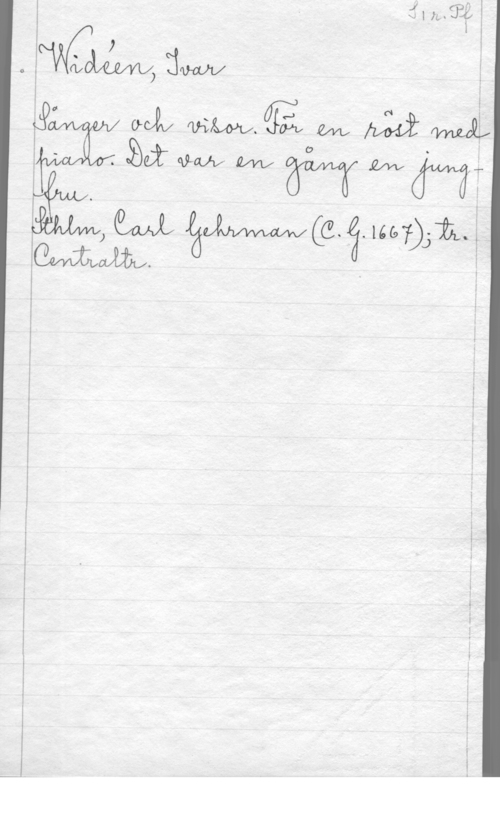 S 1 r. Pf
Widéen, Ivar
Sånger och visor. För en röst med
piano. Det var en gång en jung-
fru.
Sthlm, Carl Gehrman (C. G. 1667); tr.
Centraltr.